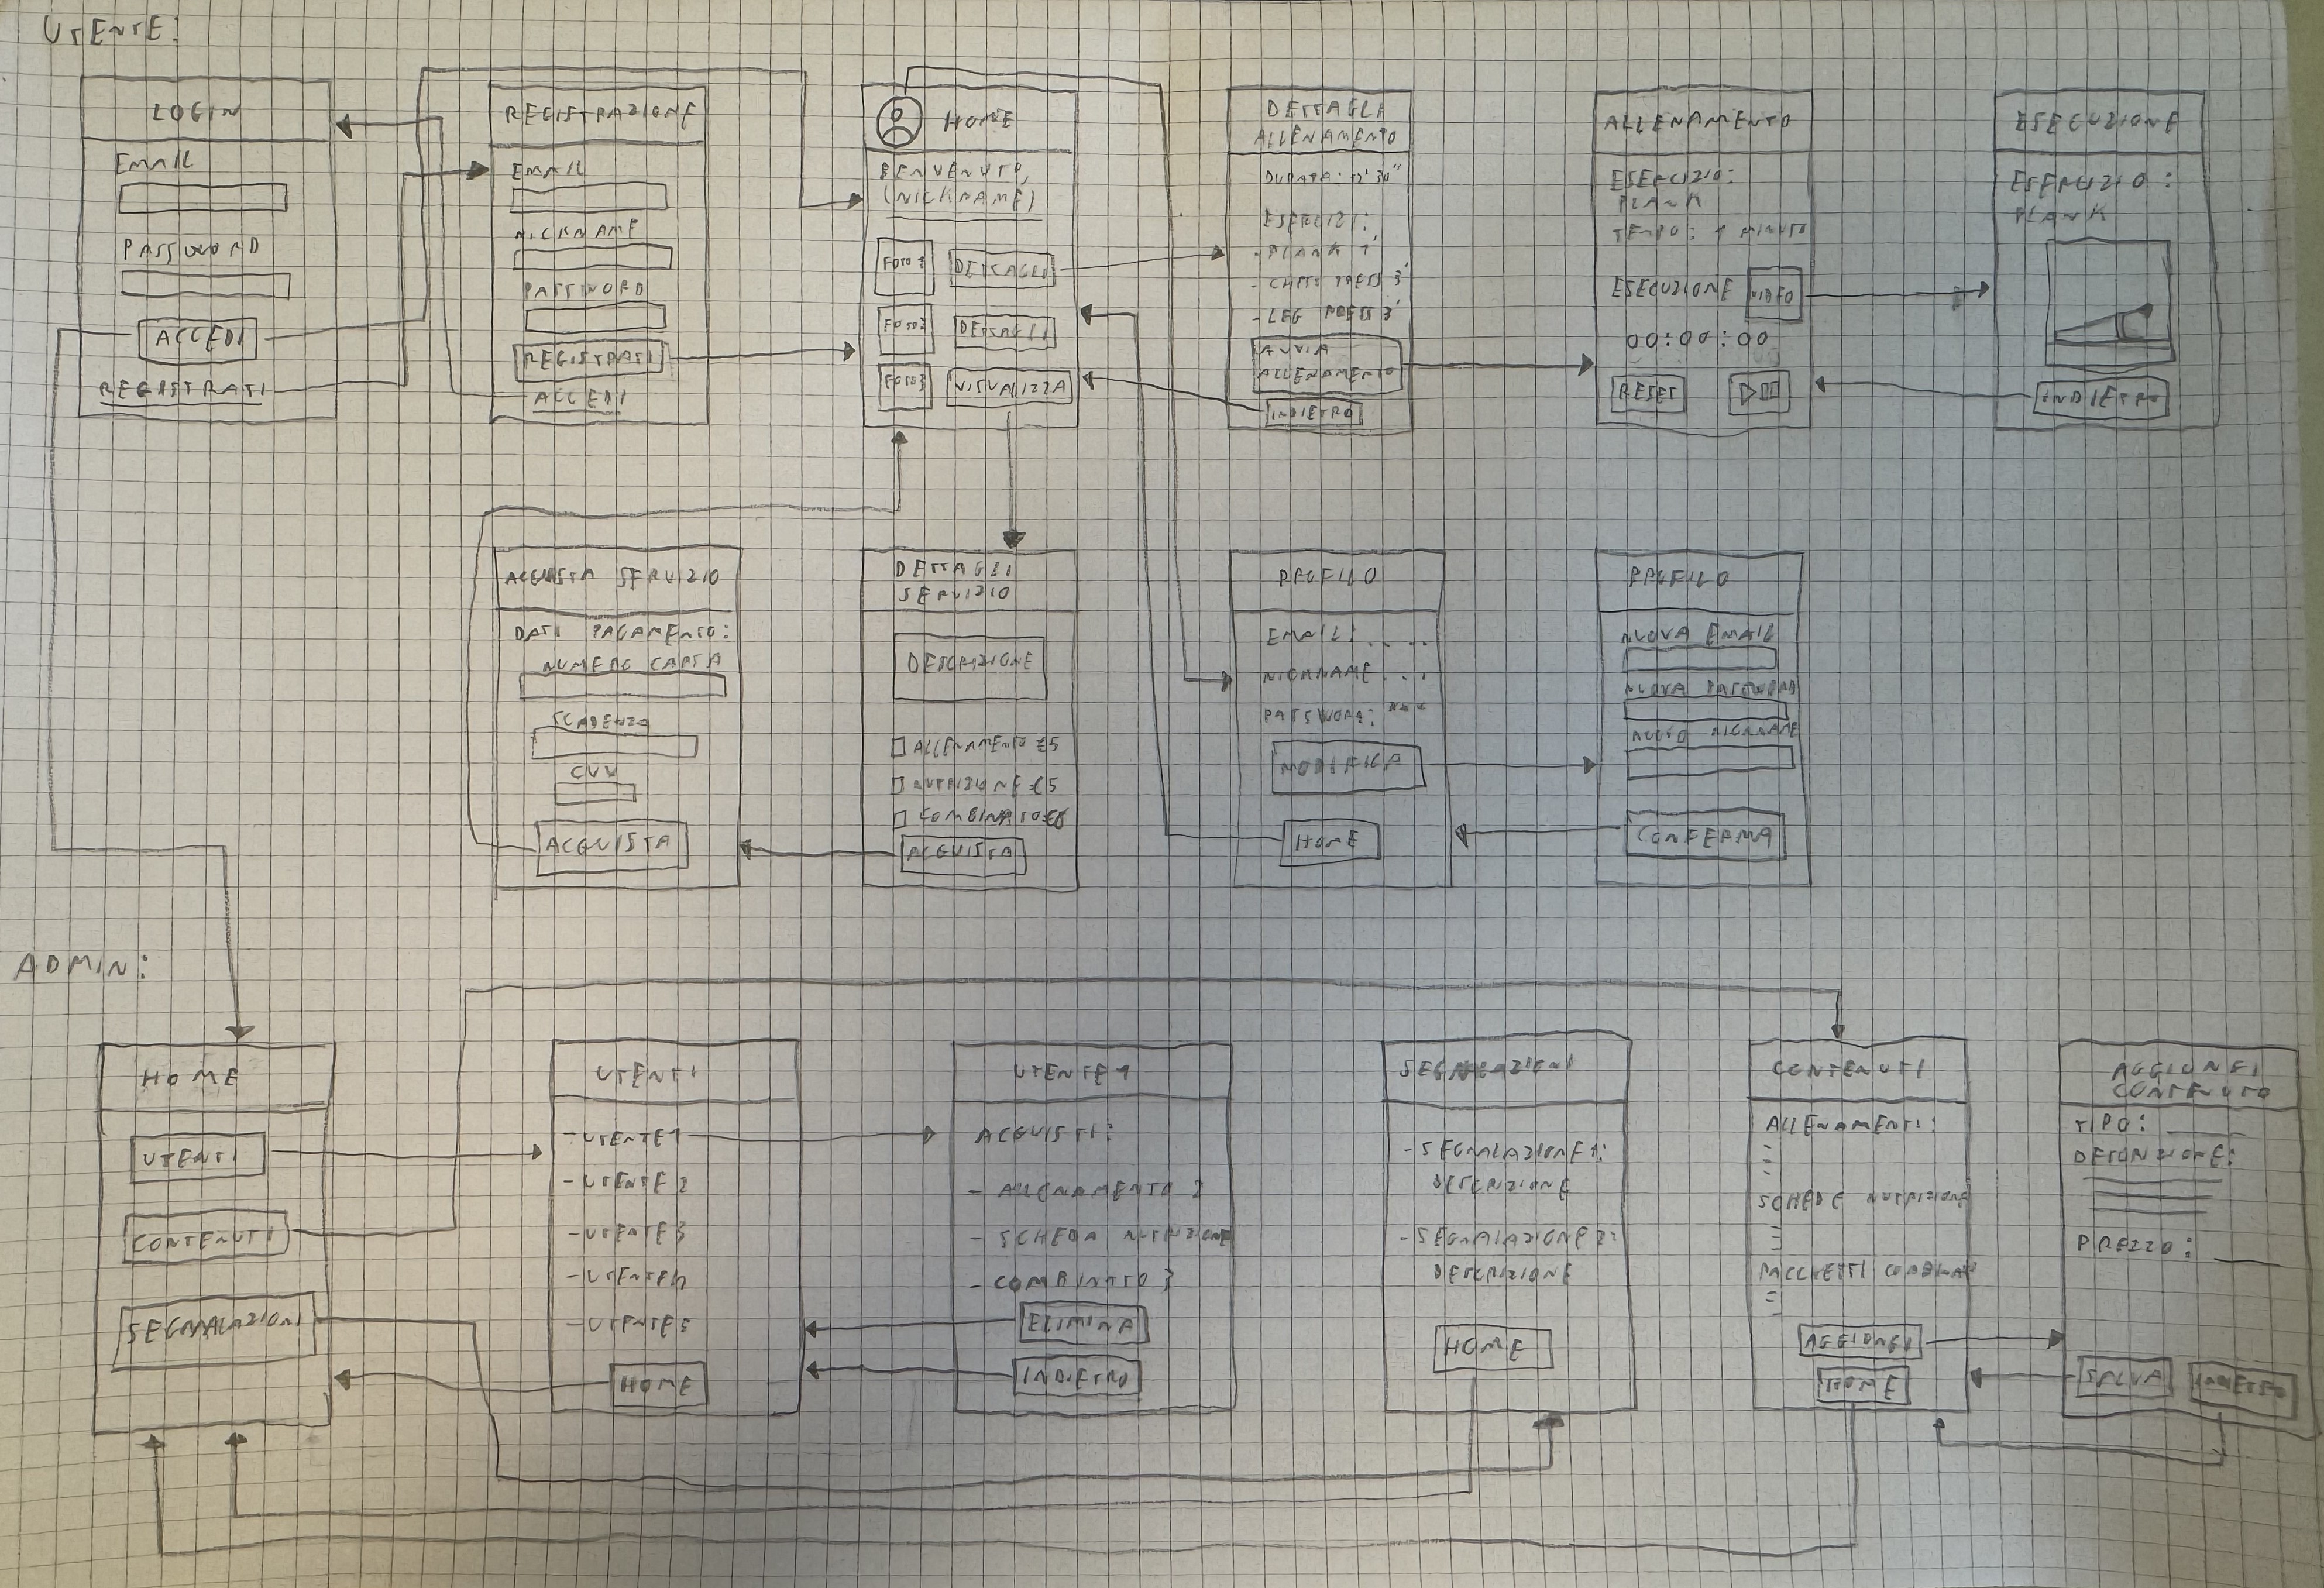 UTENTE:
LOGIN
EMAIL
PASSWORD
ACCEDI
REGISTRATI
REGISTRAZIONE
EMAIL
NICKNAME
PASSWORD
REGISTRATI
ACCEDI
HOME
BENVENUTO,
(NICKNAME)
FOTO 1 DETTAGLI
FOTO 2 DETTAGLI
FOTO 3 VISUALIZZA
DETTAGLI
ALLENAMENTO
DURATA: 12' 30"
ESERCIZI:
- PLANK 1'
- CHEST PRESS 3'
- LEG PRESS 3'
AVVIA
ALLENAMENTO
INDIETRO
ALLENAMENTO
ESERCIZIO:
PLANK
TEMPO: 1 MINUTO
ESECUZIONE VIDEO
00:00:00
RESET
ESECUZIONE
ESERCIZIO:
PLANK
INDIETRO
ACQUISTA SERVIZIO
DATI PAGAMENTO:
NUMERO CARTA
SCADENZA
CVV
ACQUISTA
DETTAGLI
SERVIZIO
DESCRIZIONE
ALLENAMENTO €5
NUTRIZIONE €5
COMBINATO €8
ACQUISTA
PROFILO
EMAIL: ....
NICKNAME ...
PASSWORD: ***
MODIFICA
HOME
PROFILO
NUOVA EMAIL
NUOVA PASSWORD
NUOVO NICKNAME
CONFERMA
ADMIN:
HOME
UTENTI
CONTENUTI
SEGNALAZIONI
UTENTI
- UTENTE 1
- UTENTE 2
- UTENTE 3
- UTENTE 4
- UTENTE 5
HOME
UTENTE 1
ACQUISTI:
- ALLENAMENTO 2
- SCHEDA NUTRIZIONE
- COMBINTTO 3
ELIMINA
INDIETRO
SEGNALAZIONI
- SEGNALAZIONE 1:
DESCRIZIONE
- SEGNALAZIONE 2:
DESCRIZIONE
HOME
CONTENUTI
ALLENAMENTI:
SCHEDE NUTRIZIONE
PACCHETTI
AGGIUNGI
HOME
AGGIUNGI
CONTENUTO
TIPO:
DESCRIZIONE:
PREZZO:
SALVA INDIETRO